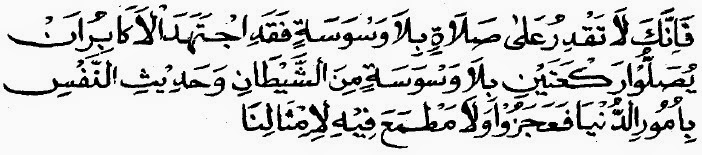 فَاِنَّكَ لَا تَقْدِرُ عَلٰى صَلَاةٍ بِلَا وَسْوَسَةٍ فَقَدِ اجْتَهَدَ الْاَكَابِرُ اَنْ
يُصَلُّوْا رَكْعَتَيْنِ بِلَا وَسْوَسَةٍ مِنَ الشَّيْطَانِ وَحَدِيْثِ النَّفْسِ
بِاُمُوْرِ الدُّنْيَا فَعَجَزُوْا وَلَا مَطْمَعَ فِيْهِ لِاَمْثَالِنَا